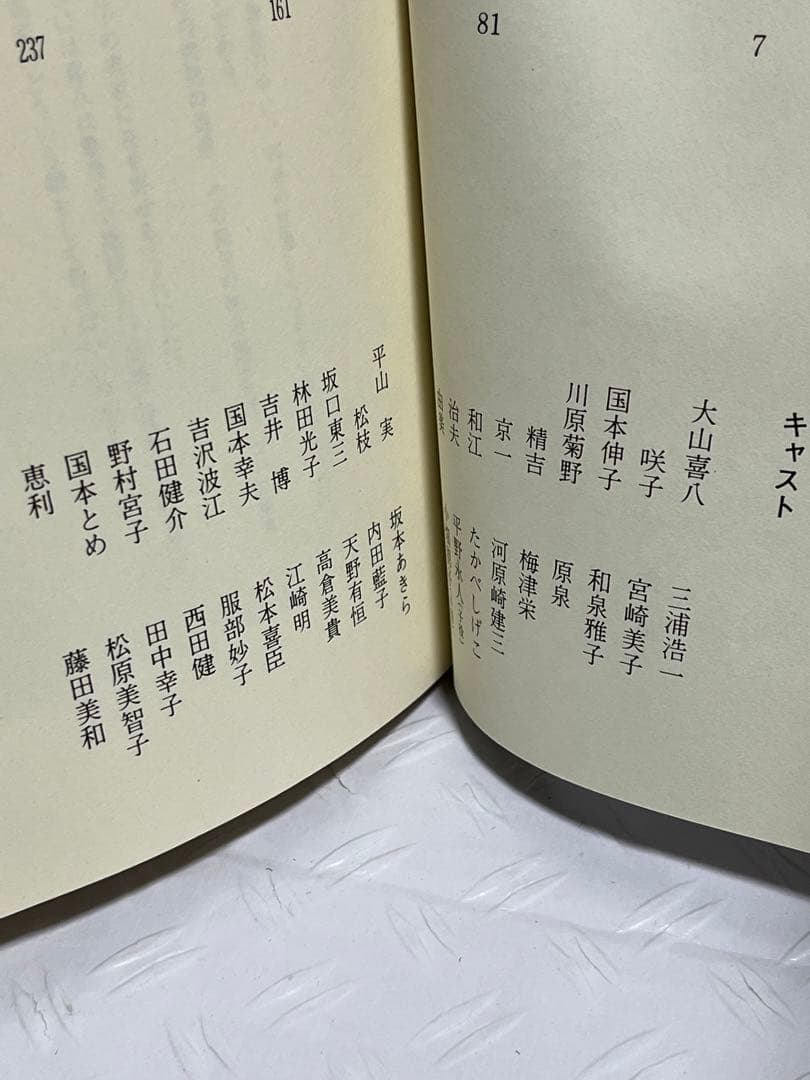 7
81
161
237
キャスト
大山喜八 三浦浩一
咲子 宮崎美子
国本伸子 和泉雅子
川原菊野 原泉
精吉 梅津栄
京一 河原崎建三
和江 たかべしげこ
治夫 平野永人(子役)
由美
平山 実 坂本あきら
松枝 内田藍子
坂口東三 天野有恒
林田光子 高倉美貴
吉井 博 江崎明
国本幸夫 松本喜臣
吉沢波江 服部妙子
石田健介 西田健
野村宮子 田中幸子
国本とめ 松原美智子
恵利 藤田美和